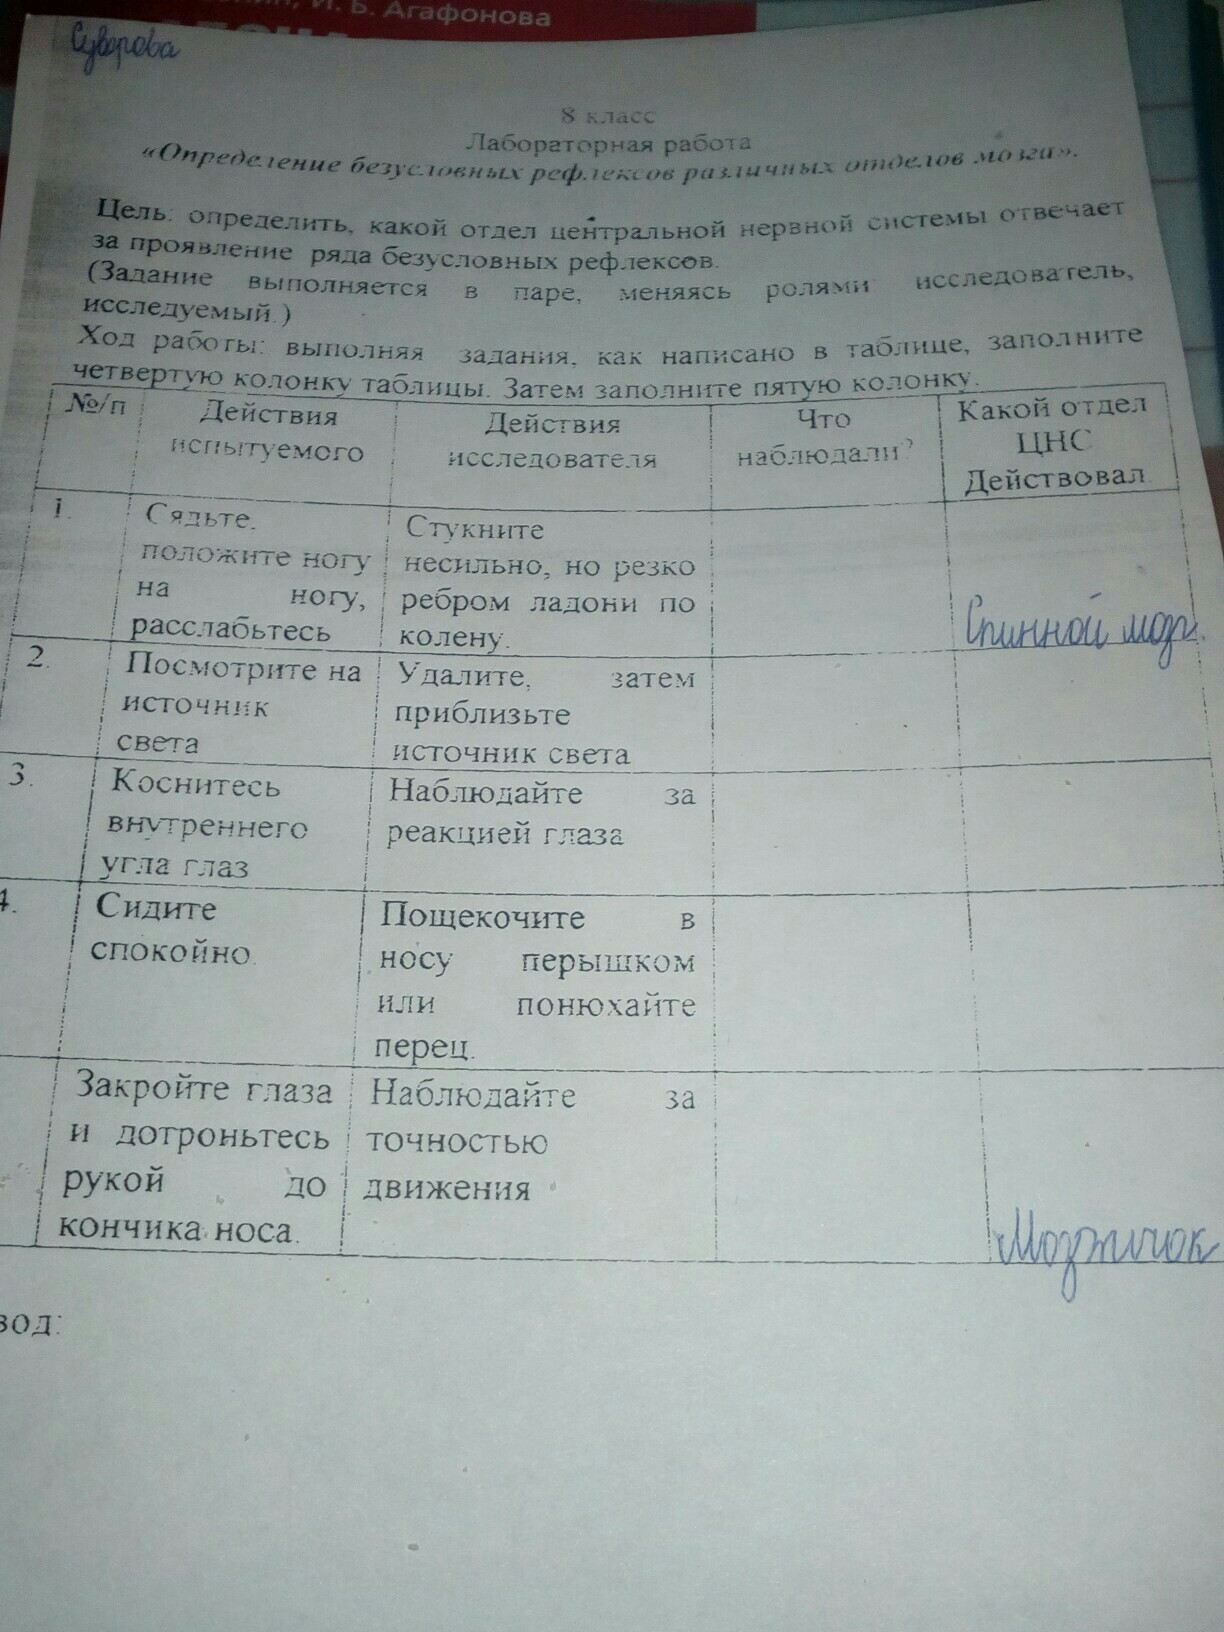 И. Б. Агафонова
Суворова
8 класс
Лабораторная работа
«Определение безусловных рефлексов различных отделов мозга».
Цель: определить, какой отдел центральной нервной системы отвечает
за проявление ряда безусловных рефлексов.
(Задание выполняется в паре, меняясь ролями: исследователь,
исследуемый.)
Ход работы: выполняя задания, как написано в таблице, заполните
четвертую колонку таблицы. Затем заполните пятую колонку.
№/п Действия испытуемого Действия исследователя Что наблюдали? Какой отдел ЦНС Действовал.
1. Сядьте, Стукните
положите ногу несильно, но резко
на ногу, ребром ладони по
расслабьтесь колену. Спинной мозг.
2. Посмотрите на Удалите, затем
источник приблизьте
света источник света
3. Коснитесь Наблюдайте за
внутреннего реакцией глаза
угла глаз
4. Сидите Пощекочите в
спокойно. носу перышком
или понюхайте
перец.
Закройте глаза Наблюдайте за
и дотроньтесь точностью
рукой до движения
кончика носа. Мозжичок
вод: